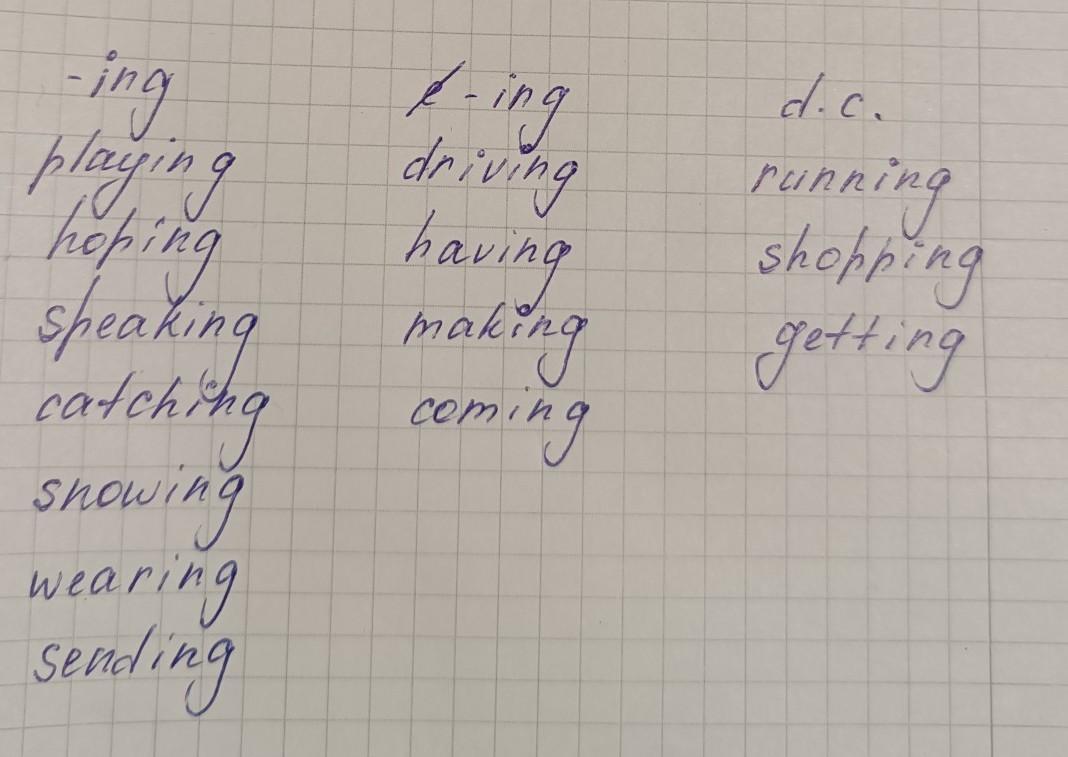 -ing
playing
hoping
speaking
catching
snowing
wearing
sending
e-ing
driving
having
making
coming
d.c.
running
shopping
getting